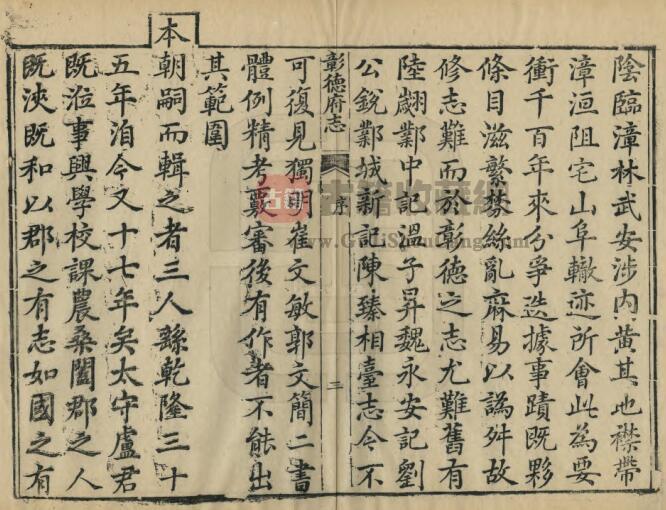 陰臨漳林武安涉內黃其地襟帶
漳洹阻宅山阜轍迹所會此為要
衝千百年來分爭迭據事蹟既夥
條目滋繁棼絲亂麻易以譌舛故
修志難而於彰德之志尤難舊有
陸翽鄴中記溫子昇魏永安記劉
公銳鄴城新記陳臻相臺志今不
彰德府志 序 二
可復見獨明崔文敏郭文簡二書
體例精考覈審後有作者不能出
其範圍
本朝嗣而輯之者三人繇乾隆三十
五年洎今又十七年矣太守盧君
既涖事興學校課農桑闔郡之人
既浹既和以郡之有志如國之有
古籍收藏網
www.GuJiShouCang.com